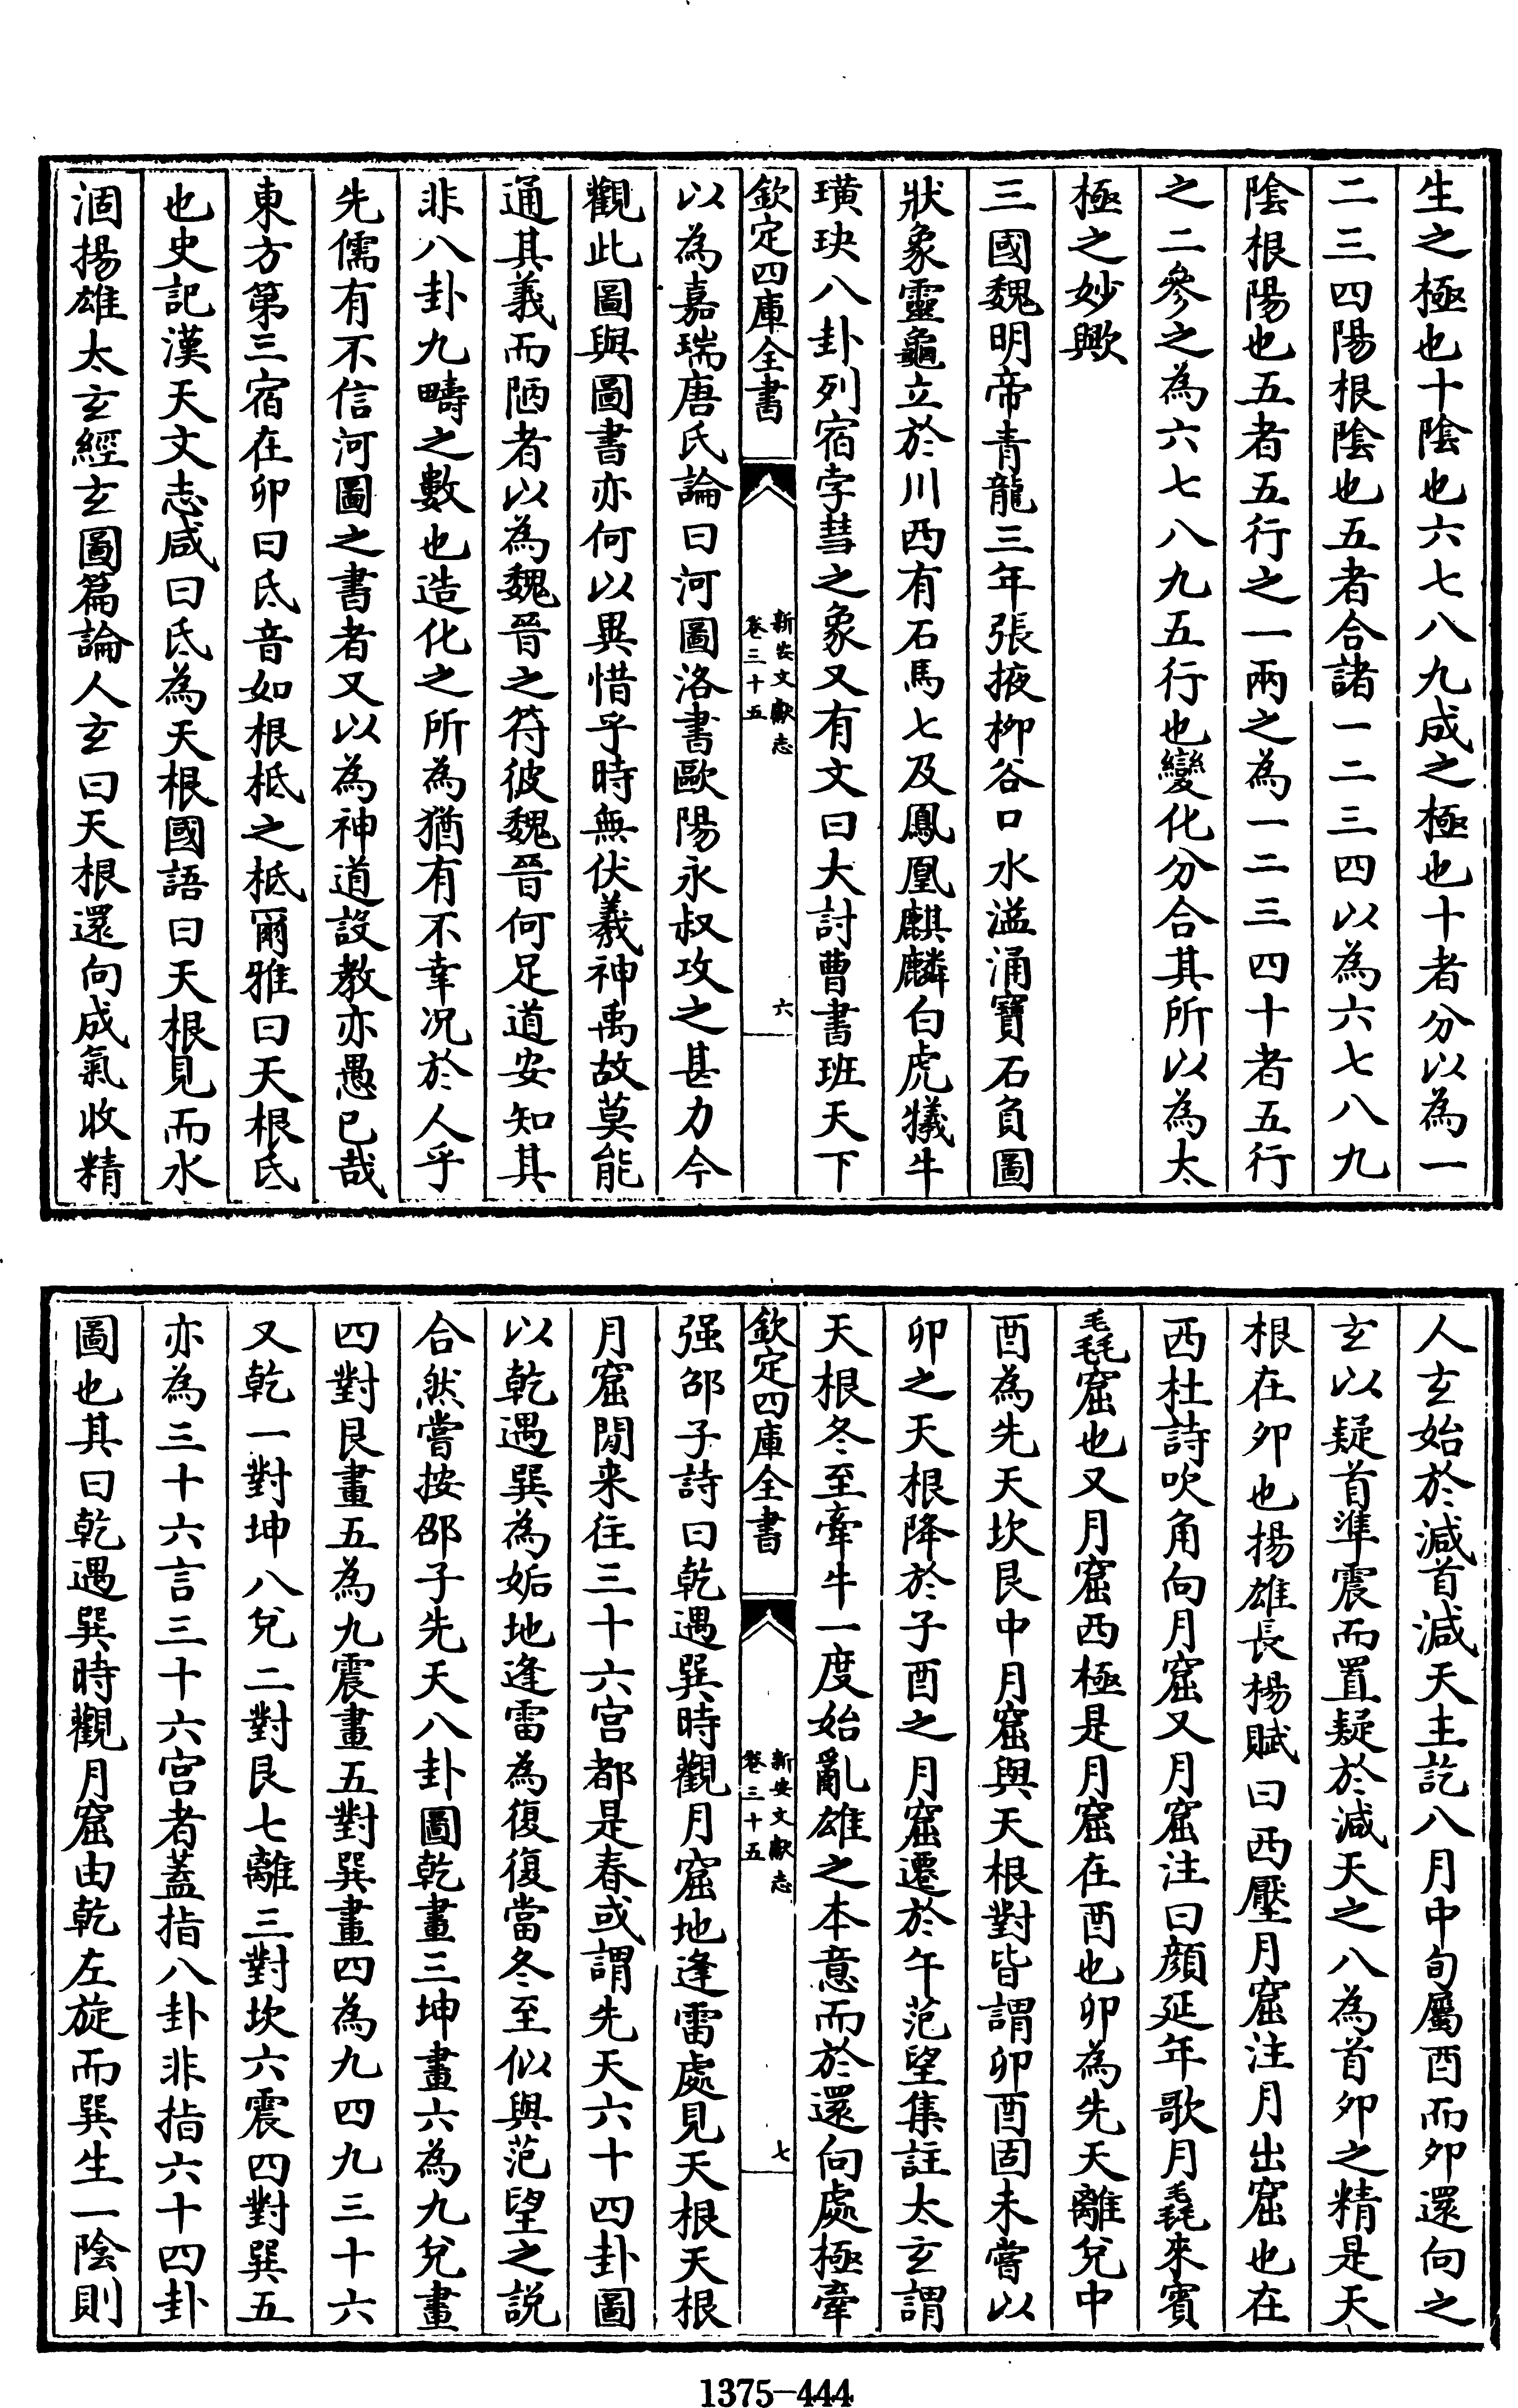 生之極也十陰也六七八九成之極也十者分以為一
二三四陽根陰也五者合諸一二三四以為六七八九
陰根陽也五者五行之一兩之為一二三四十者五行
之二參之為六七八九五行也變化分合其所以為太
極之妙歟
三國魏明帝青龍三年張掖柳谷口水溢涌寶石負圖
狀象靈龜立於川西有石馬七及鳳凰麒麟白虎犧牛
璜玦八卦列宿孛彗之象又有文曰大討曹書班天下
欽定四庫全書
新安文獻志
卷三十五
六
以為嘉瑞唐氏論曰河圖洛書歐陽永叔攻之甚力今
觀此圖與圖書亦何以異惜乎時無伏羲神禹故莫能
通其義而陋者以為魏晉之符彼魏晉何足道安知其
非八卦九疇之數也造化之所為猶有不幸况於人乎
先儒有不信河圖之書者又以為神道設教亦愚已哉
東方第三宿在卯曰氐音如根柢之柢爾雅曰天根氐
也史記漢天文志咸曰氐為天根國語曰天根見而水
涸揚雄太玄經玄圖篇論人玄曰天根還向成氣收精
人玄始於減首減天主訖八月中旬屬酉而夘還向之
玄以疑首準震而置疑於減天之八為首夘之精是天
根在夘也揚雄長楊賦曰西壓月窟注月出窟也在
西杜詩吹角向月窟又月窟注曰顔延年歌月毳來賓
毳窟也又月窟西極是月窟在酉也卯為先天離兌中
酉為先天坎艮中月窟與天根對皆謂卯酉固未嘗以
卯之天根降於子酉之月窟遷於午范望集註太玄謂
天根冬至牽牛一度始亂雄之本意而於還向處極牽
欽定四庫全書
新安文獻志
卷三十五
七
强邵子詩曰乾遇巽時觀月窟地逢雷處見天根天根
月窟閒来徃三十六宫都是春或謂先天六十四卦圖
以乾遇巽為姤地逢雷為復復當冬至似與范望之說
合然嘗按邵子先天八卦圖乾畫三坤畫六為九兌畫
四對艮畫五為九震畫五對巽畫四為九四九三十六
又乾一對坤八兌二對艮七離三對坎六震四對巽五
亦為三十六言三十六宫者蓋指八卦非指六十四卦
圖也其曰乾遇巽時觀月窟由乾左旋而巽生一陰則
1375-444